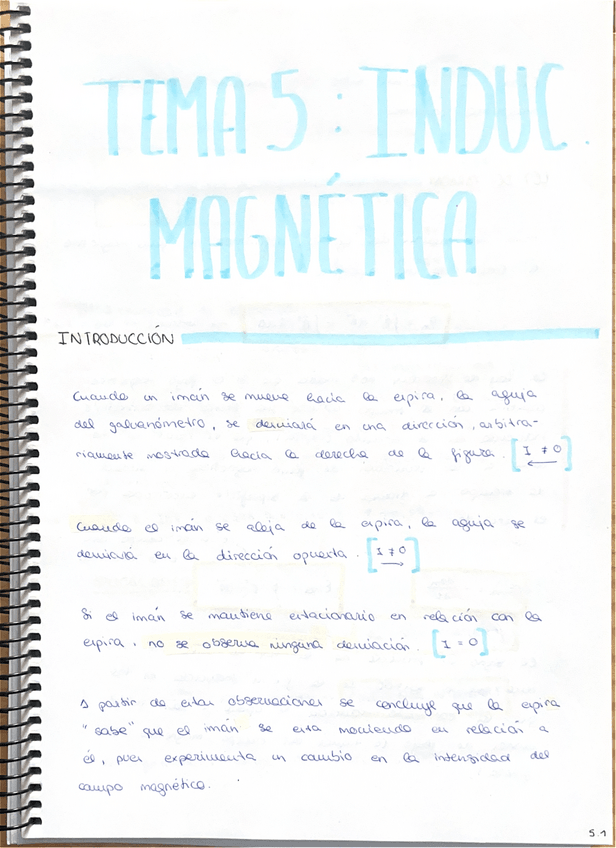 TEMA 5 : INDUC.
MAGNÉTICA
INTRODUCCIÓN
Cuando un imán se mueve hacia la espira, la aguja
del galvanómetro, se desviará en una dirección, arbitra-
riamente mostrada hacia la derecha de la figura. [I ≠ 0]
←
Cuando el imán se aleja de la espira, la aguja se
desviará en la dirección opuesta. [I ≠ 0]
→
Si el imán se mantiene estacionario en relación con la
espira, no se observa ninguna desviación. [I = 0]
A partir de estas observaciones se concluye que la espira
"sabe" que el imán se esta moviendo en relación a
él, pues experimenta un cambio en la intensidad del
campo magnético.
5.1